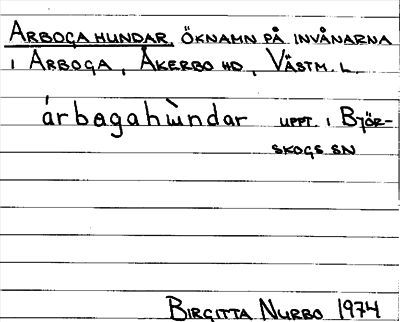 ARBOGAHUNDAR, ÖKNAMN PÅ INVÅNARNA
I ARBOGA, ÅKERBO HD, VÄSTM. L.
árbogahùndar UPPT. I BJÖR-
SKOGS SN
BIRGITTA NURBO 1974